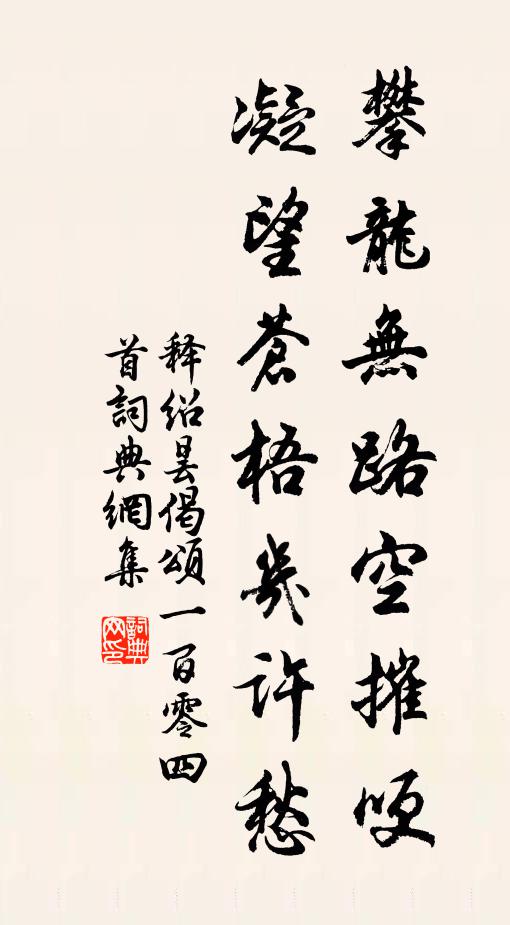 攀龍無路空摧哽
凝望蒼梧幾許愁
释紹曇偈頌一百零四
首詞典網集
詞典
网印